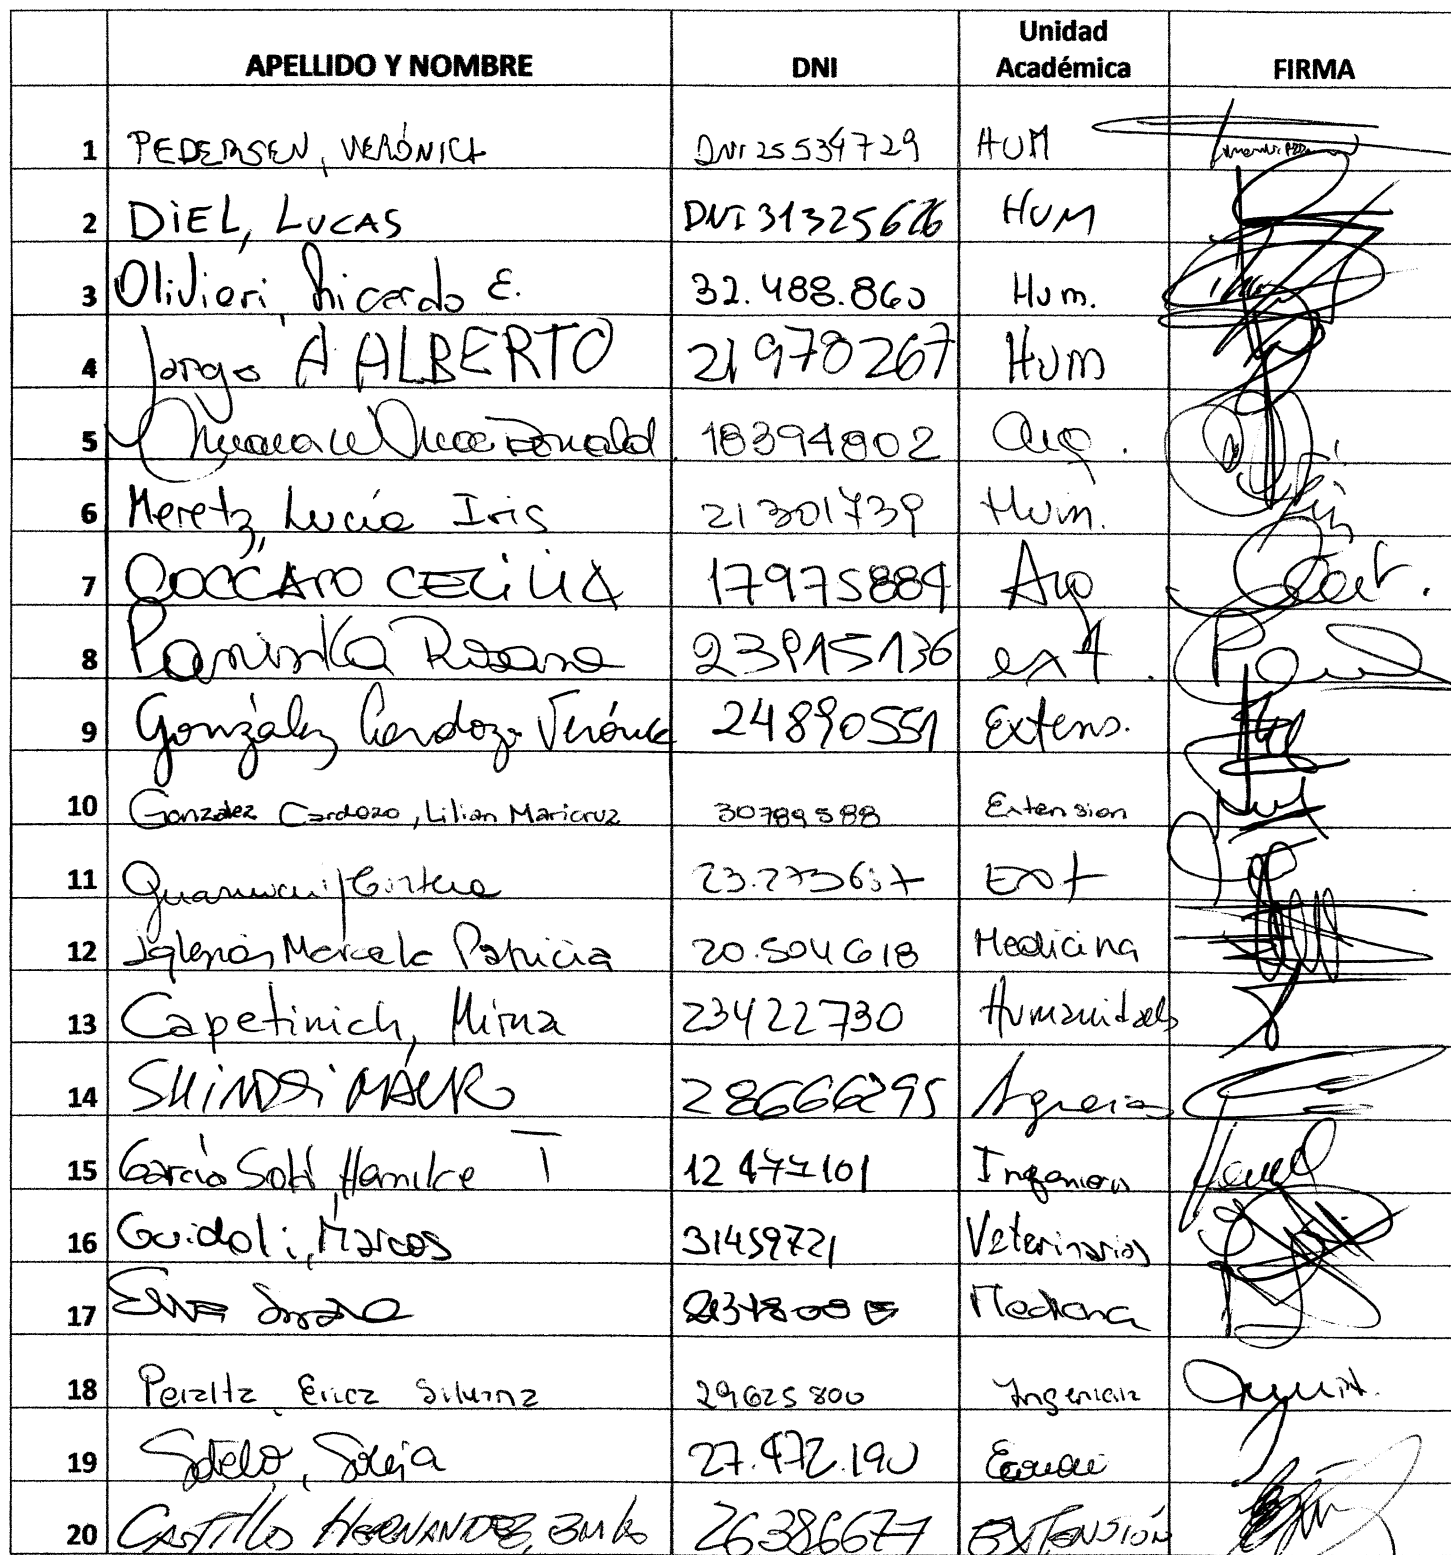 APELLIDO Y NOMBRE DNI Unidad Académica FIRMA
1 PEDERSEN, VERÓNICA DNI 25534729 HUM
2 DIEL, LUCAS DNI 31325626 HUM
3 Olivieri, Ricardo E. 32.488.860 Hum.
4 Jorge A ALBERTO 21978267 HUM
5 Mac Donald 18394802 Arq.
6 Meretz, Lucía Iris 21301739 Hum.
7 COCCATO CECILIA 17975884 Arq
8 Paninka Rosana 23915136 ext.
9 González Cardozo Verónica 24890551 Extens.
10 Gonzalez Cardozo, Lilian Maricruz 30789588 Extension
11 Ext
12 Iglesias Marcela Patricia 20.504618 Medicina
13 Capetinich, Mirna 23422730 Humanidades
14 SHINDOI MAURO 28666295 Agrarias
15 García Solá, Hamilce T 12477101 Ingenieria
16 Guidoli, Marcos 31459721 Veterinarias
17 Medicina
18 Peralta, Erica Silvina 29625800 Ingenieria
19 Sotelo, Silvia 27.472.190
20 CASTILLO HERNANDEZ, Emilo 26386677 EXTENSIÓN